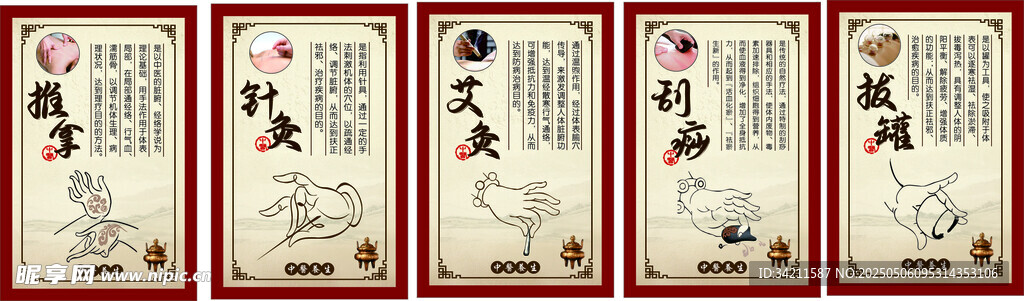 推拿
中醫
是以中医的脏腑、经络学说为
理论基础，用手法作用于体表
局部，在局部通经络、行气血、
濡筋骨，以调节机体生理、病
理状况，达到理疗目的的方法。
中醫养生
针灸
中醫
是指利用针具，通过一定的手
法刺激机体的穴位，以疏通经
络、调节脏腑，从而达到扶正
祛邪、治疗疾病的目的。
中醫养生
艾灸
中醫
通过温煦作用，经过体表腧穴
传导，来激发调整人体脏腑功
能，达到温经散寒行气通络，
可增强抵抗力和免疫力，从而
达到防病治病的目的。
中醫养生
刮痧
中醫
是传统的自然疗法，通过特制的刮痧
器具和相应的手法，使体内废物、毒
素加速排除，组织细胞得到营养，从
而使血液得到净化，增加了全身抵抗
力，从而起到「活血化瘀」、「祛淤
生新」的作用。
中醫养生
拔罐
中醫
是以罐为工具，使之吸附于体
表可以逐寒祛湿、祛除淤滞、
拔毒泻热，具有调整人体的阴
阳平衡、解除疲劳、增强体质
的功能；从而达到扶正祛邪、
治愈疾病的目的。
中醫养生
昵享网 www.nipic.cn
ID:34211587 NO:20250506095314353106